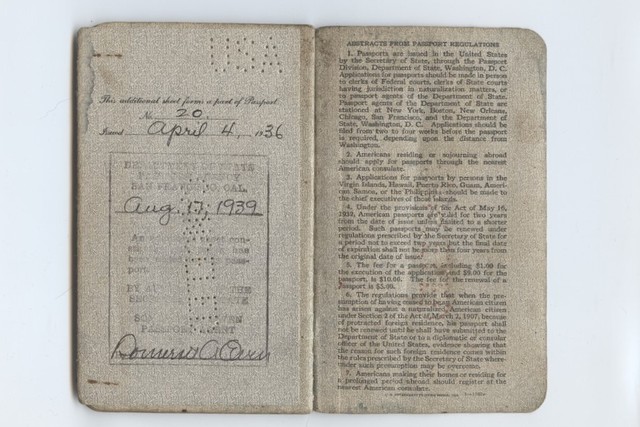 USA
This additional sheet forms a part of Passport
No. 20.
Issued April 4, 1936
DEPARTMENT OF STATE
SAN FRANCISCO, CAL.
Aug. 17, 1939
port.
PASSPORT AGENT
ABSTRACTS FROM PASSPORT REGULATIONS
1. Passports are issued in the United States
by the Secretary of State, through the Passport
Division, Department of State, Washington, D. C.
Applications for passports should be made in person
to clerks of Federal courts, clerks of State courts
having jurisdiction in naturalization matters, or
to passport agents of the Department of State.
Passport agents of the Department of State are
stationed at New York, Boston, New Orleans,
Chicago, San Francisco, and the Department of
State, Washington, D. C. Applications should be
filed from two to four weeks before the passport
is required, depending upon the distance from
Washington.
2. Americans residing or sojourning abroad
should apply for passports through the nearest
American consulate.
3. Applications for passports by persons in the
Virgin Islands, Hawaii, Puerto Rico, Guam, Ameri-
can Samoa, or the Philippines should be made to
the chief executives of those islands.
4. Under the provisions of the Act of May 16,
1932, American passports are valid for two years
from the date of issue unless limited to a shorter
period. Such passports may be renewed under
regulations prescribed by the Secretary of State for
a period not to exceed two years, but the final date
of expiration shall not be more than four years from
the original date of issue.
5. The fee for a passport, including $1.00 for
the execution of the application and $9.00 for the
passport, is $10.00. The fee for the renewal of a
passport is $5.00.
6. The regulations provide that when the pre-
sumption of having ceased to be an American citizen
has arisen against a naturalized American citizen
under Section 2 of the Act of March 2, 1907, because
of protracted foreign residence, his passport shall
not be renewed until he shall have submitted to the
Department of State or to a diplomatic or consular
officer of the United States, evidence showing that
the reason for such foreign residence comes within
the rules prescribed by the Secretary of State where-
under such presumption may be overcome.
7. Americans making their homes or residing for
a prolonged period abroad should register at the
nearest American consulate.